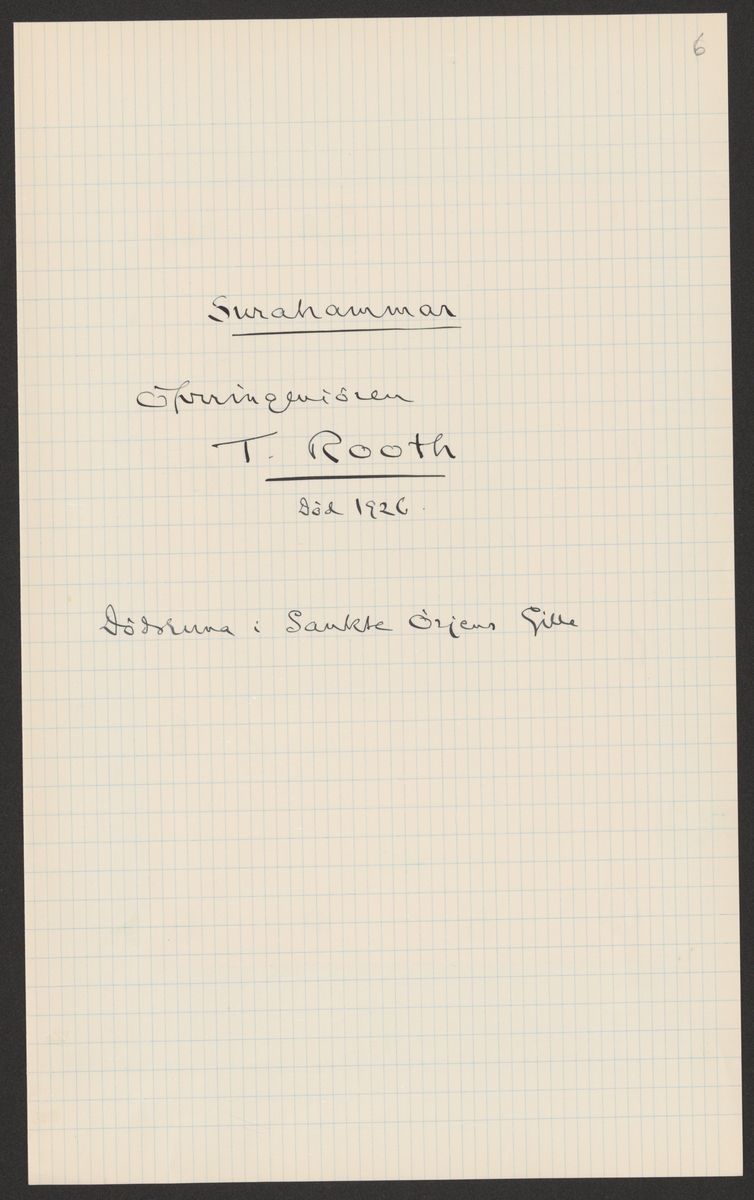 6
Surahammar
Öfveringeniören
T. Rooth
Död 1926.
Dödsruna i Sankte Örjens Gille